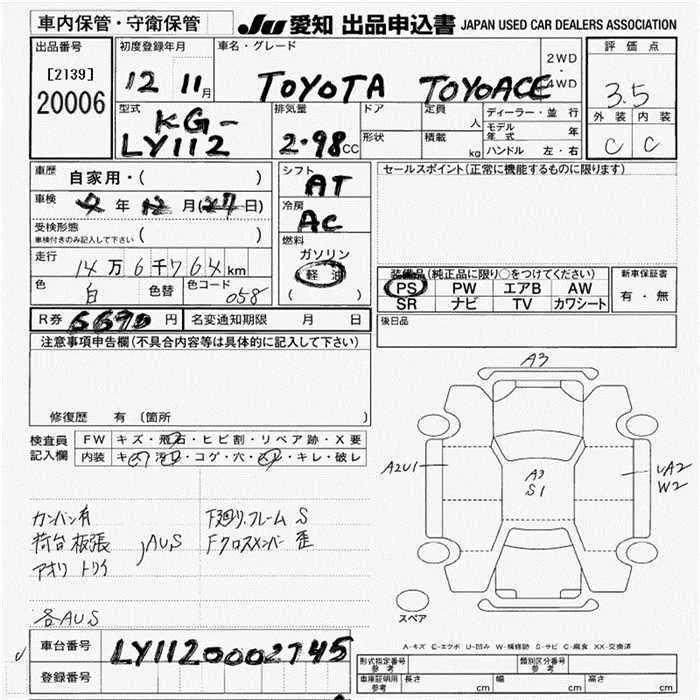 車内保管・守衛保管
JU 愛知 出品申込書 JAPAN USED CAR DEALERS ASSOCIATION
出品番号
[2139]
20006
初度登録年月
12 11月
車名・グレード
TOYOTA TOYOACE
2WD
・
4WD
評価点
3.5
外装 内装
C C
型式
KG-
LY112
排気量
2.98cc
ドア
形状
定員 人
積載 kg
ディーラー・並行
モデル年式 年
ハンドル 左・右
車歴
自家用・( )
車検
年 12 月(27日)
受検形態
車検付きのみ記入して下さい ( )
走行
14万6千764km
色
白
色替
色コード
058
シフト
AT
冷房
AC
燃料
ガソリン
軽油
( )
セールスポイント(正常に機能するものに限ります)
装備品(純正品に限り○をつけてください)
PS PW エアB AW
SR ナビ TV カワシート
新車保証書
有・無
後日品
R券 6690 円 名変通知期限 月 日
注意事項申告欄(不具合内容等は具体的に記入して下さい)
修復歴 有 〔箇所 〕
検査員記入欄
FW キズ・飛石・ヒビ割・リペア跡・X要
内装 キズ・汚れ・コゲ・穴・・キレ・破レ
カンバン有
荷台板張
アオリトリイ
AUS
下廻り、フレームS
Fクロスメンバー歪
各AUS
A3
A2U1
A3
S1
UA2
W2
スペア
A-キズ E-エクボ U-凹み W-補修跡 S-サビ C-腐食 XX-交換済
車台番号
LY1120002745
登録番号
型式指定番号 参考
類別区分番号 参考
車庫証明用 参考
長さ cm 幅 cm 高さ cm